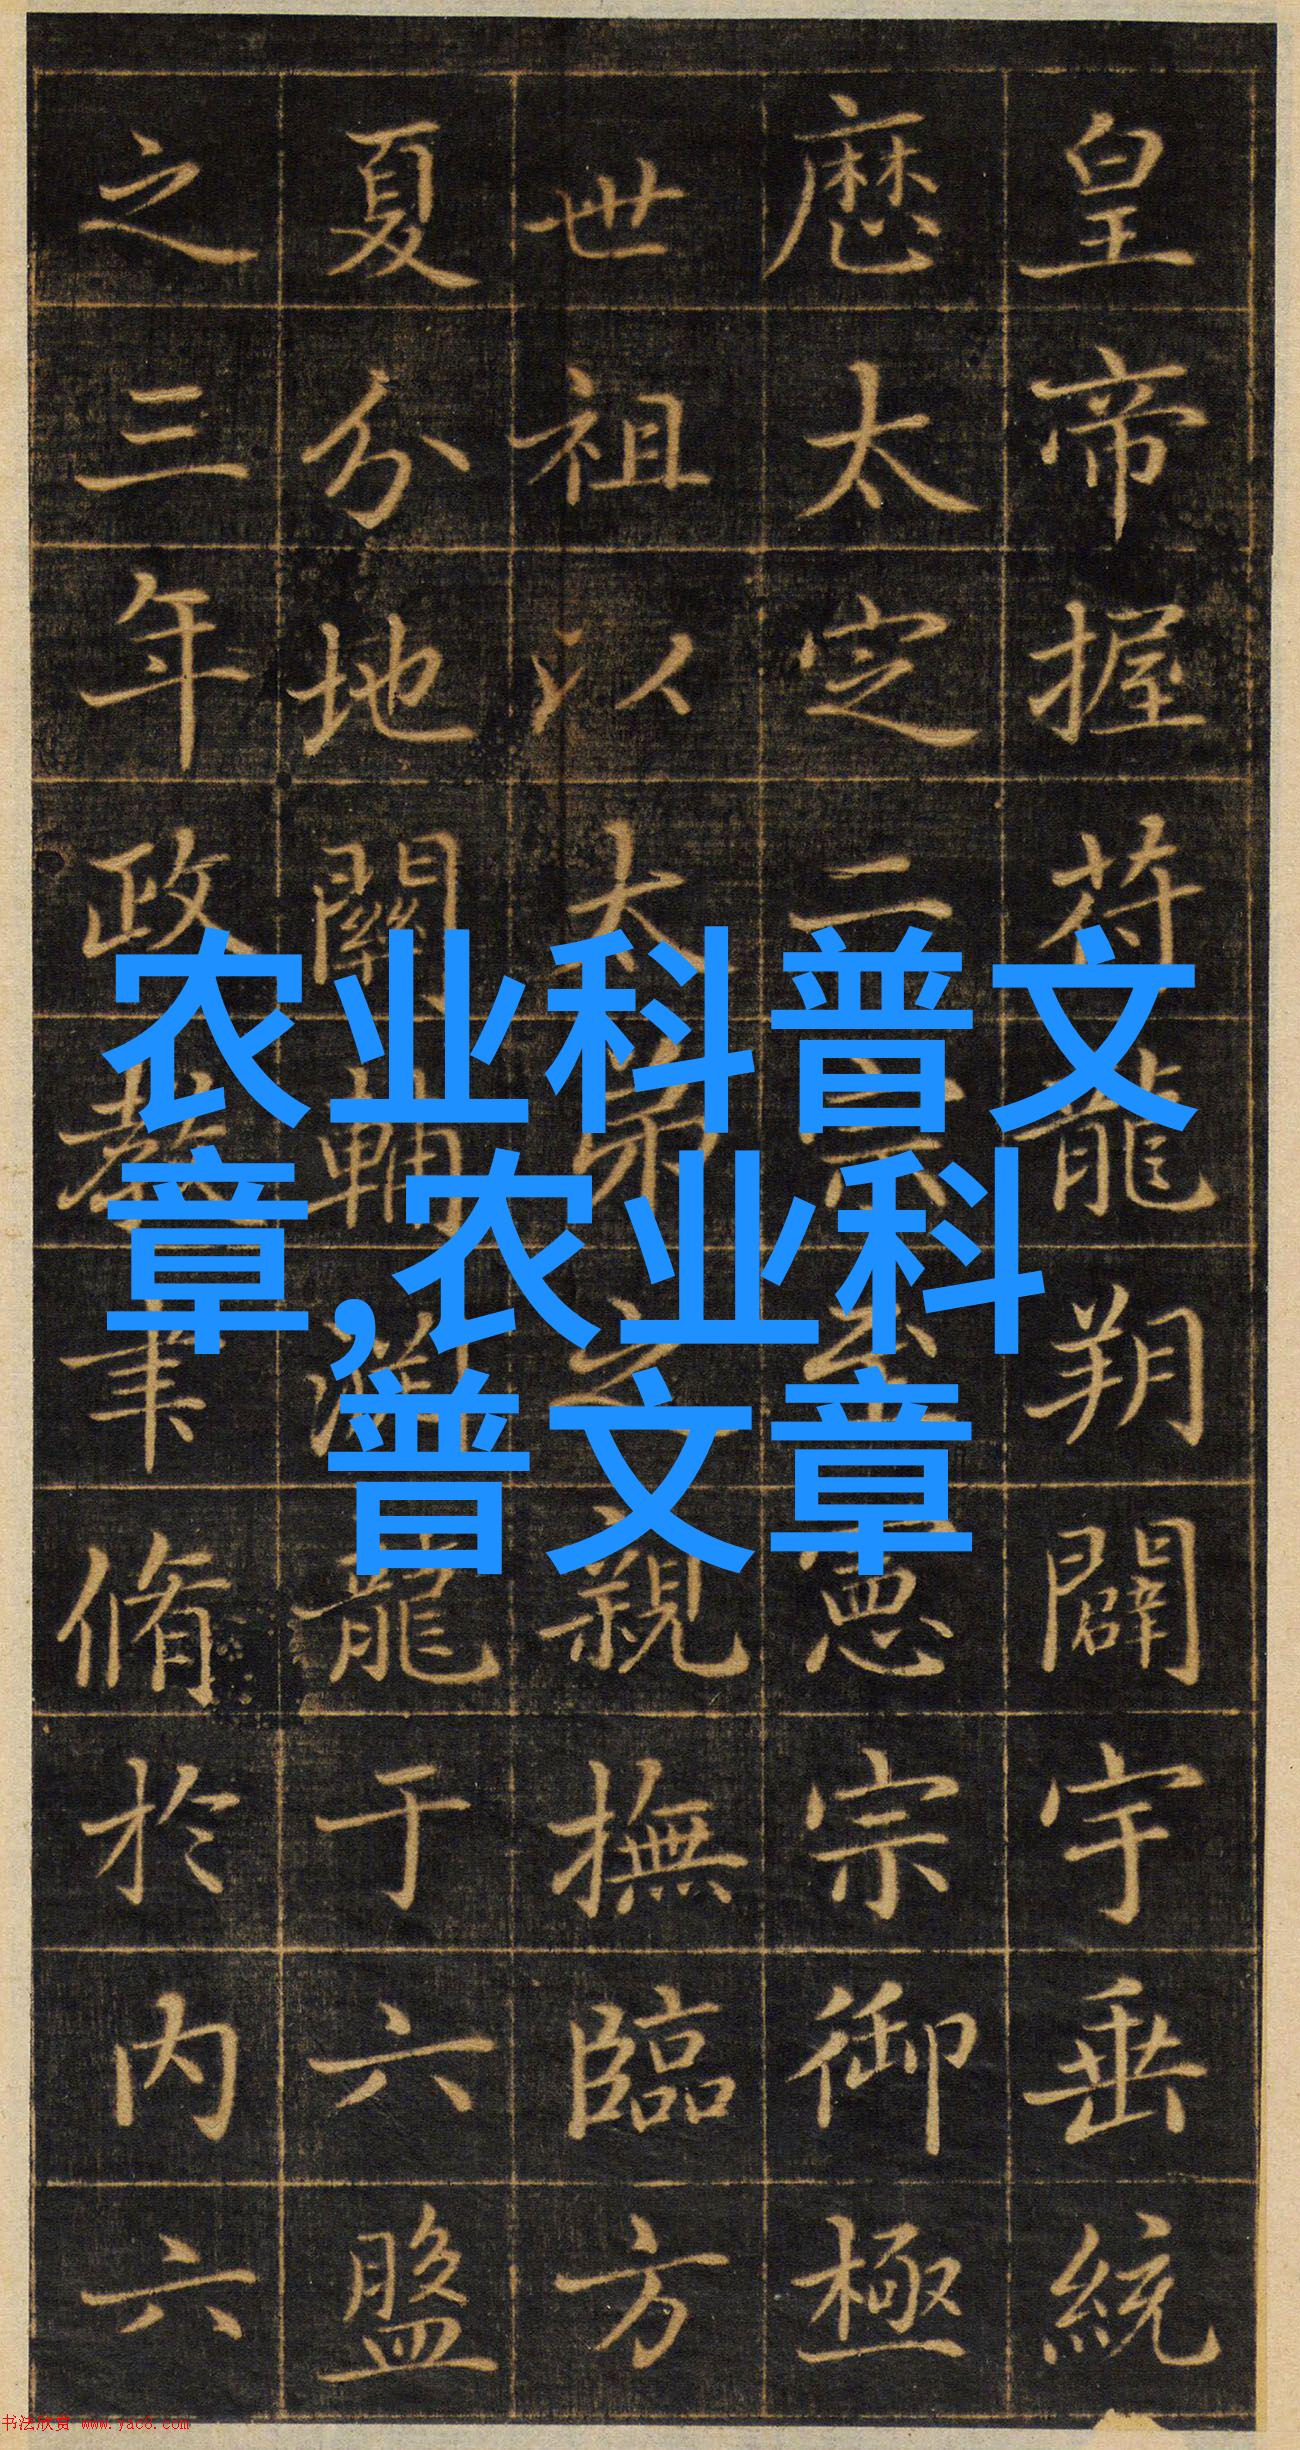 皇帝握符龍朔闢宇垂統
厯太定二宗至憲宗御極
世祖以太弟之親撫臨方
夏分地關輔龍于六盤
之三年政教聿脩於内六
农业科普文
章,农业科
普文章
书法欣赏 www.yac8.com